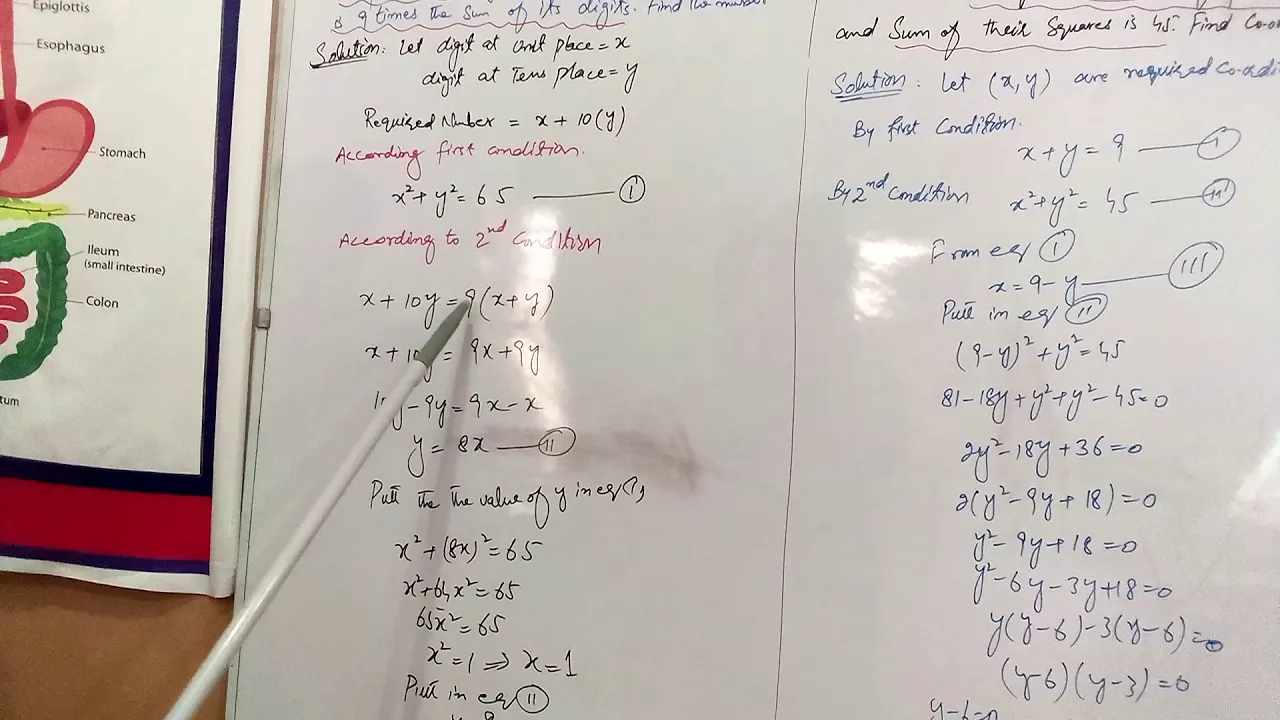 Epiglottis
Esophagus
Stomach
Pancreas
Ileum
(small intestine)
Colon
is 9 times the sum of its digits. Find the number
Solution: Let digit at unit place = x
digit at Tens place = y
Required Number = x + 10(y)
According first condition.
x² + y² = 65 —— (i)
According to 2nd condition
x + 10y = 9(x+y)
x + 10y = 9x + 9y
10y - 9y = 9x - x
y = 8x —— (ii)
Putt the the value of y in eq(i)
x² + (8x)² = 65
x² + 64x² = 65
65x² = 65
x² = 1 ⇒ x = 1
Putt in eq (ii)
and Sum of their Squares is 45. Find
Solution: Let (x,y) are required
By first Condition.
x + y = 9 —— (i)
By 2nd condition x² + y² = 45 —— (ii)
From eq (i)
x = 9 - y —— (III)
Putt in eq (ii)
(9-y)² + y² = 45
81 - 18y + y² + y² - 45 = 0
2y² - 18y + 36 = 0
2(y² - 9y + 18) = 0
y² - 9y + 18 = 0
y² - 6y - 3y + 18 = 0
y(y-6) - 3(y-6) = 0
(y-6)(y-3) = 0
y - 6 = 0